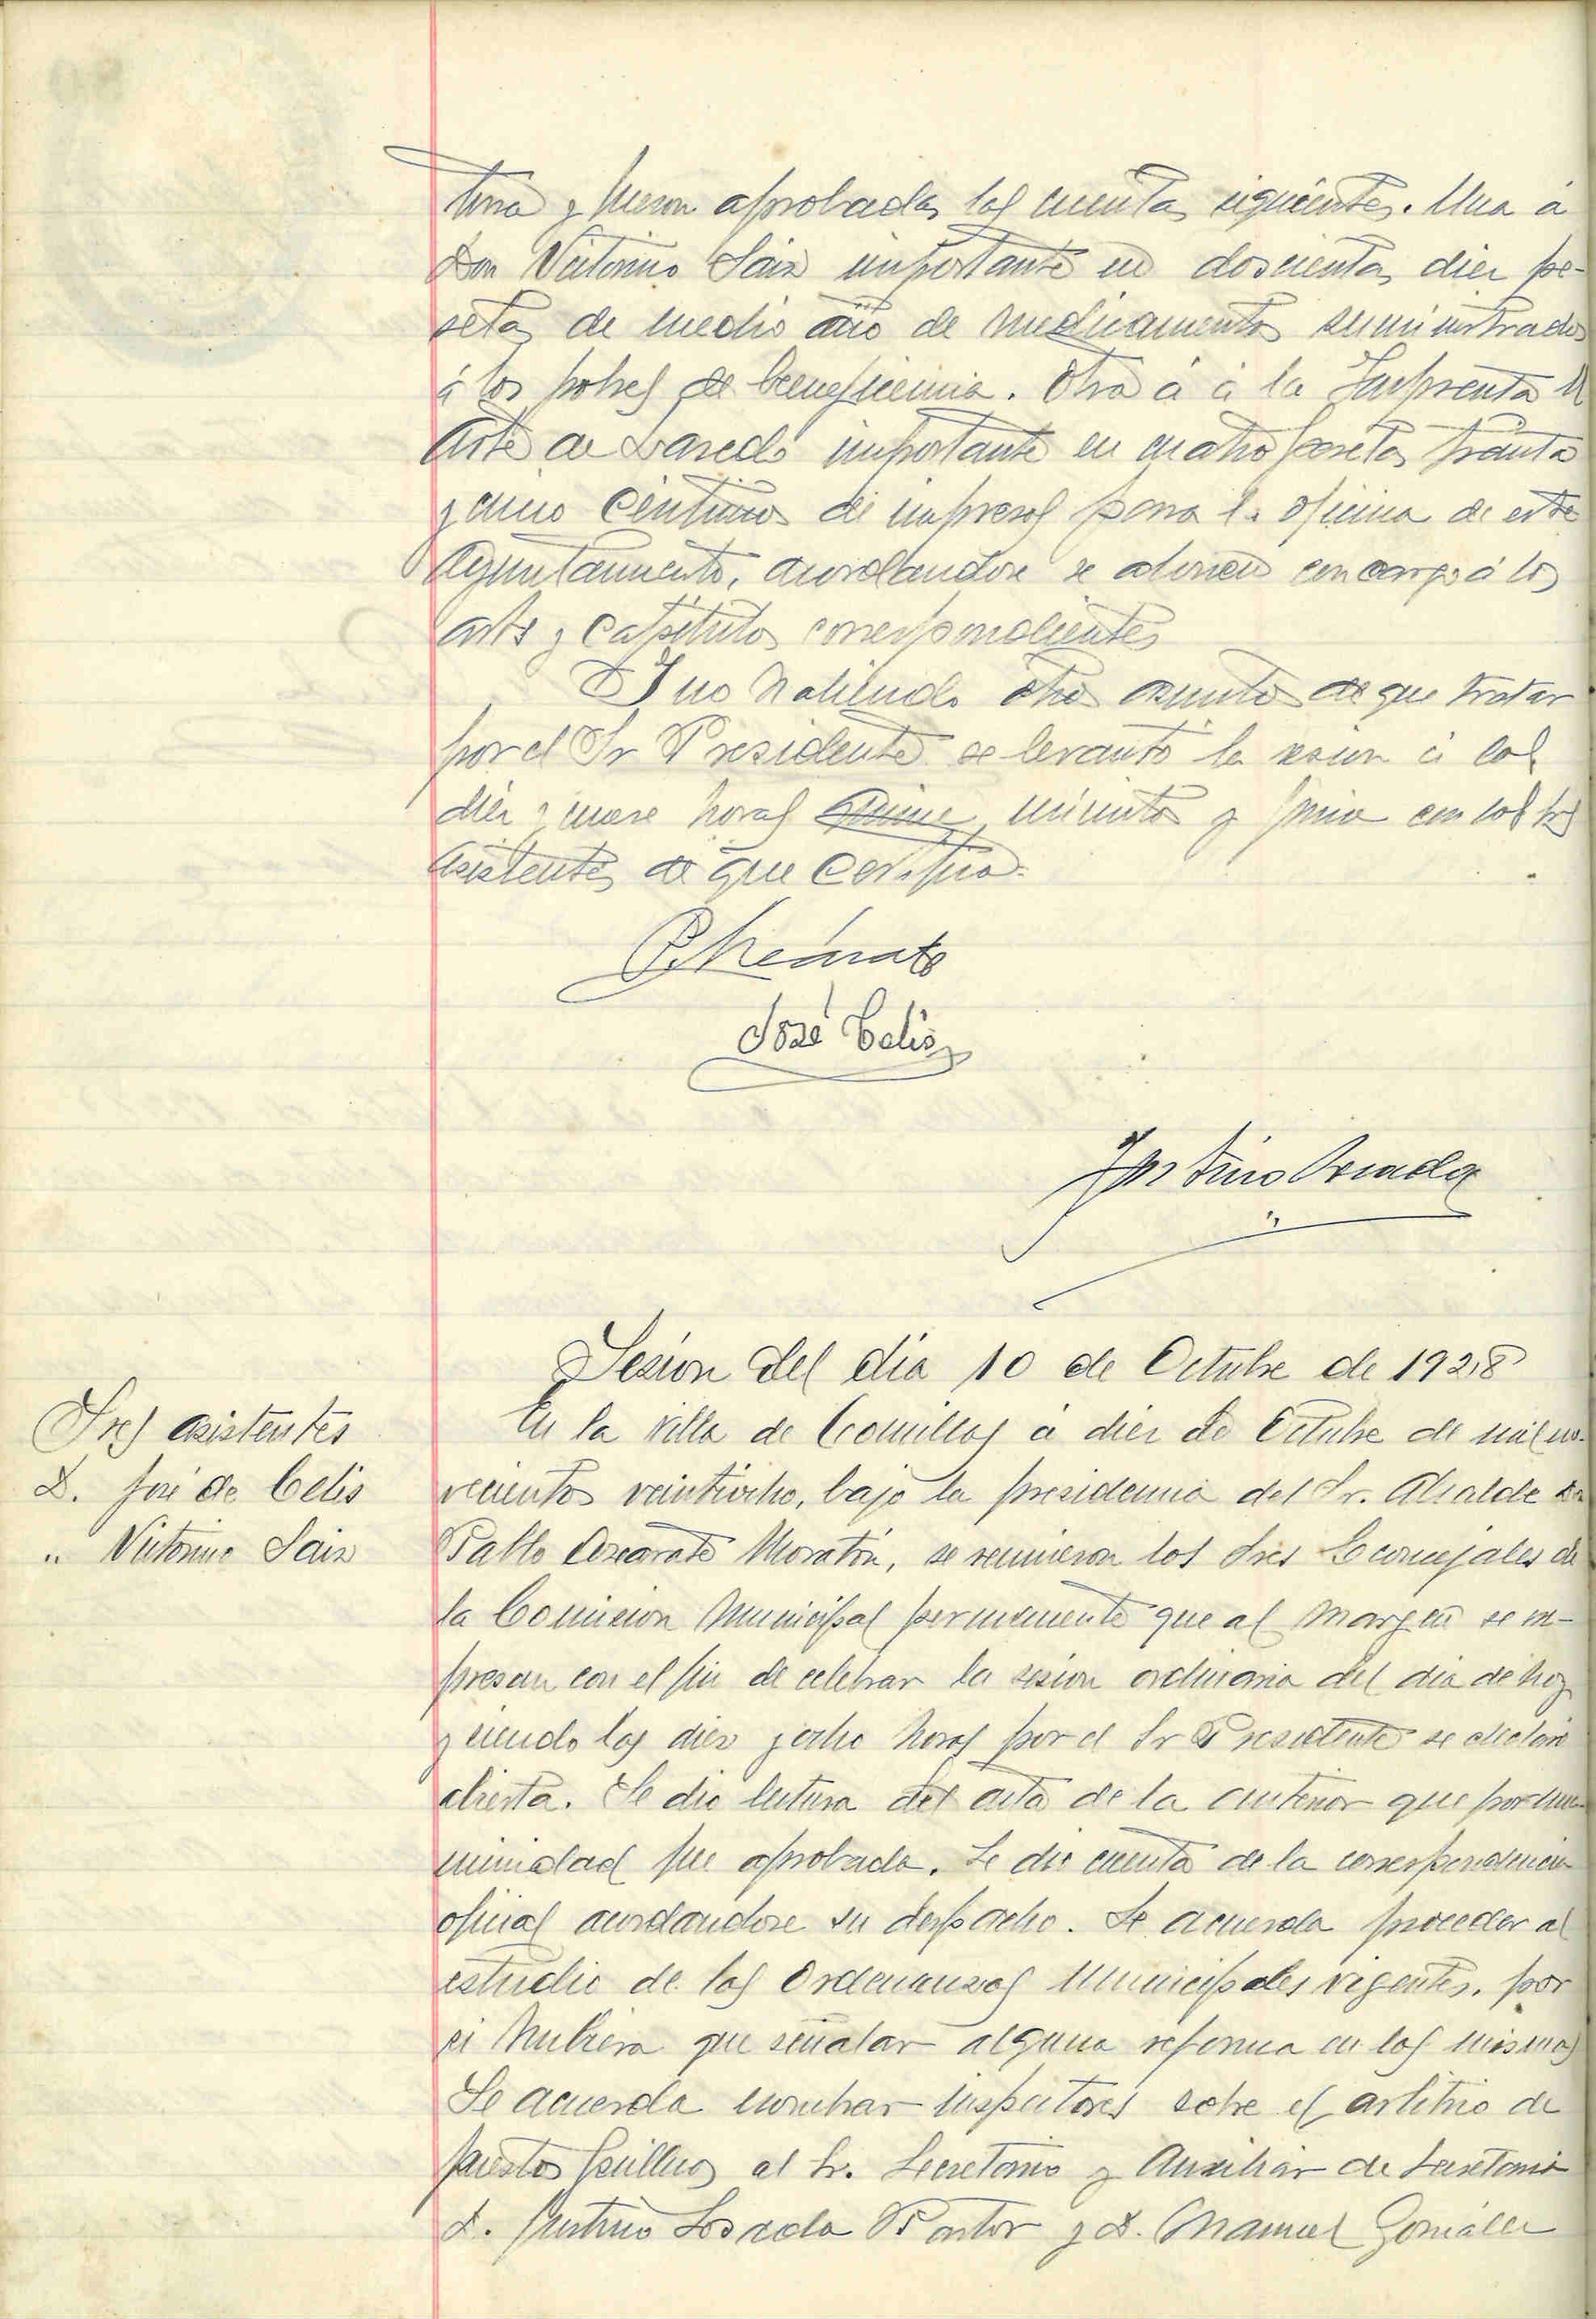 y fueron aprobadas las cuentas siguientes. Una á
Don Victorino Sáiz importante en doscientas diez pe-
setas de medio año de medicamentos suministrados
á los pobres de beneficencia. Otra á á la Imprenta El
Arte de Laredo importante en cuatro pesetas treinta
y cinco centimos de impresos para la oficina de este
Ayuntamiento, acordandose se abonen con cargo á los
arts y capitulos correspondientes
Y no habiendo otros asuntos de que tratar
por el Sr Presidente se levantó la sesion á las
diez y nueve horas quince minutos y firma con los Sres
asistentes de que certifico.
P. Azcárate
José Celis
Justino Losada
Sesion del dia 10 de Octubre de 1928
Sres asistentes
D. José de Celis
" Victorino Saiz
En la villa de Comillas á diez de Octubre de mil no-
vecientos veintiocho, bajo la presidencia del Sr. Alcalde Dn
Pablo Azcarate Moratón, se reunieron los Sres Concejales de
la Comision Municipal permanente que al margen se ex-
presan con el fin de celebrar la sesion ordinaria del dia de hoy
y siendo las diez y ocho horas por el Sr Presidente se declaró
abierta. Se dio lectura del acta de la anterior que por una-
nimidad fue aprobada. Se dio cuenta de la correspondencia
oficial acordandose su despacho. Se acuerda proceder al
estudio de las Ordenanzas Municipales vigentes, por
si hubiera que señalar alguna reforma en las mismas
Se acuerda nombrar inspectores sobre el arbitrio de
puestos públicos al Sr. Secretario y Auxiliar de Secretaria
D. Justino Losada Pastor y D. Manuel González